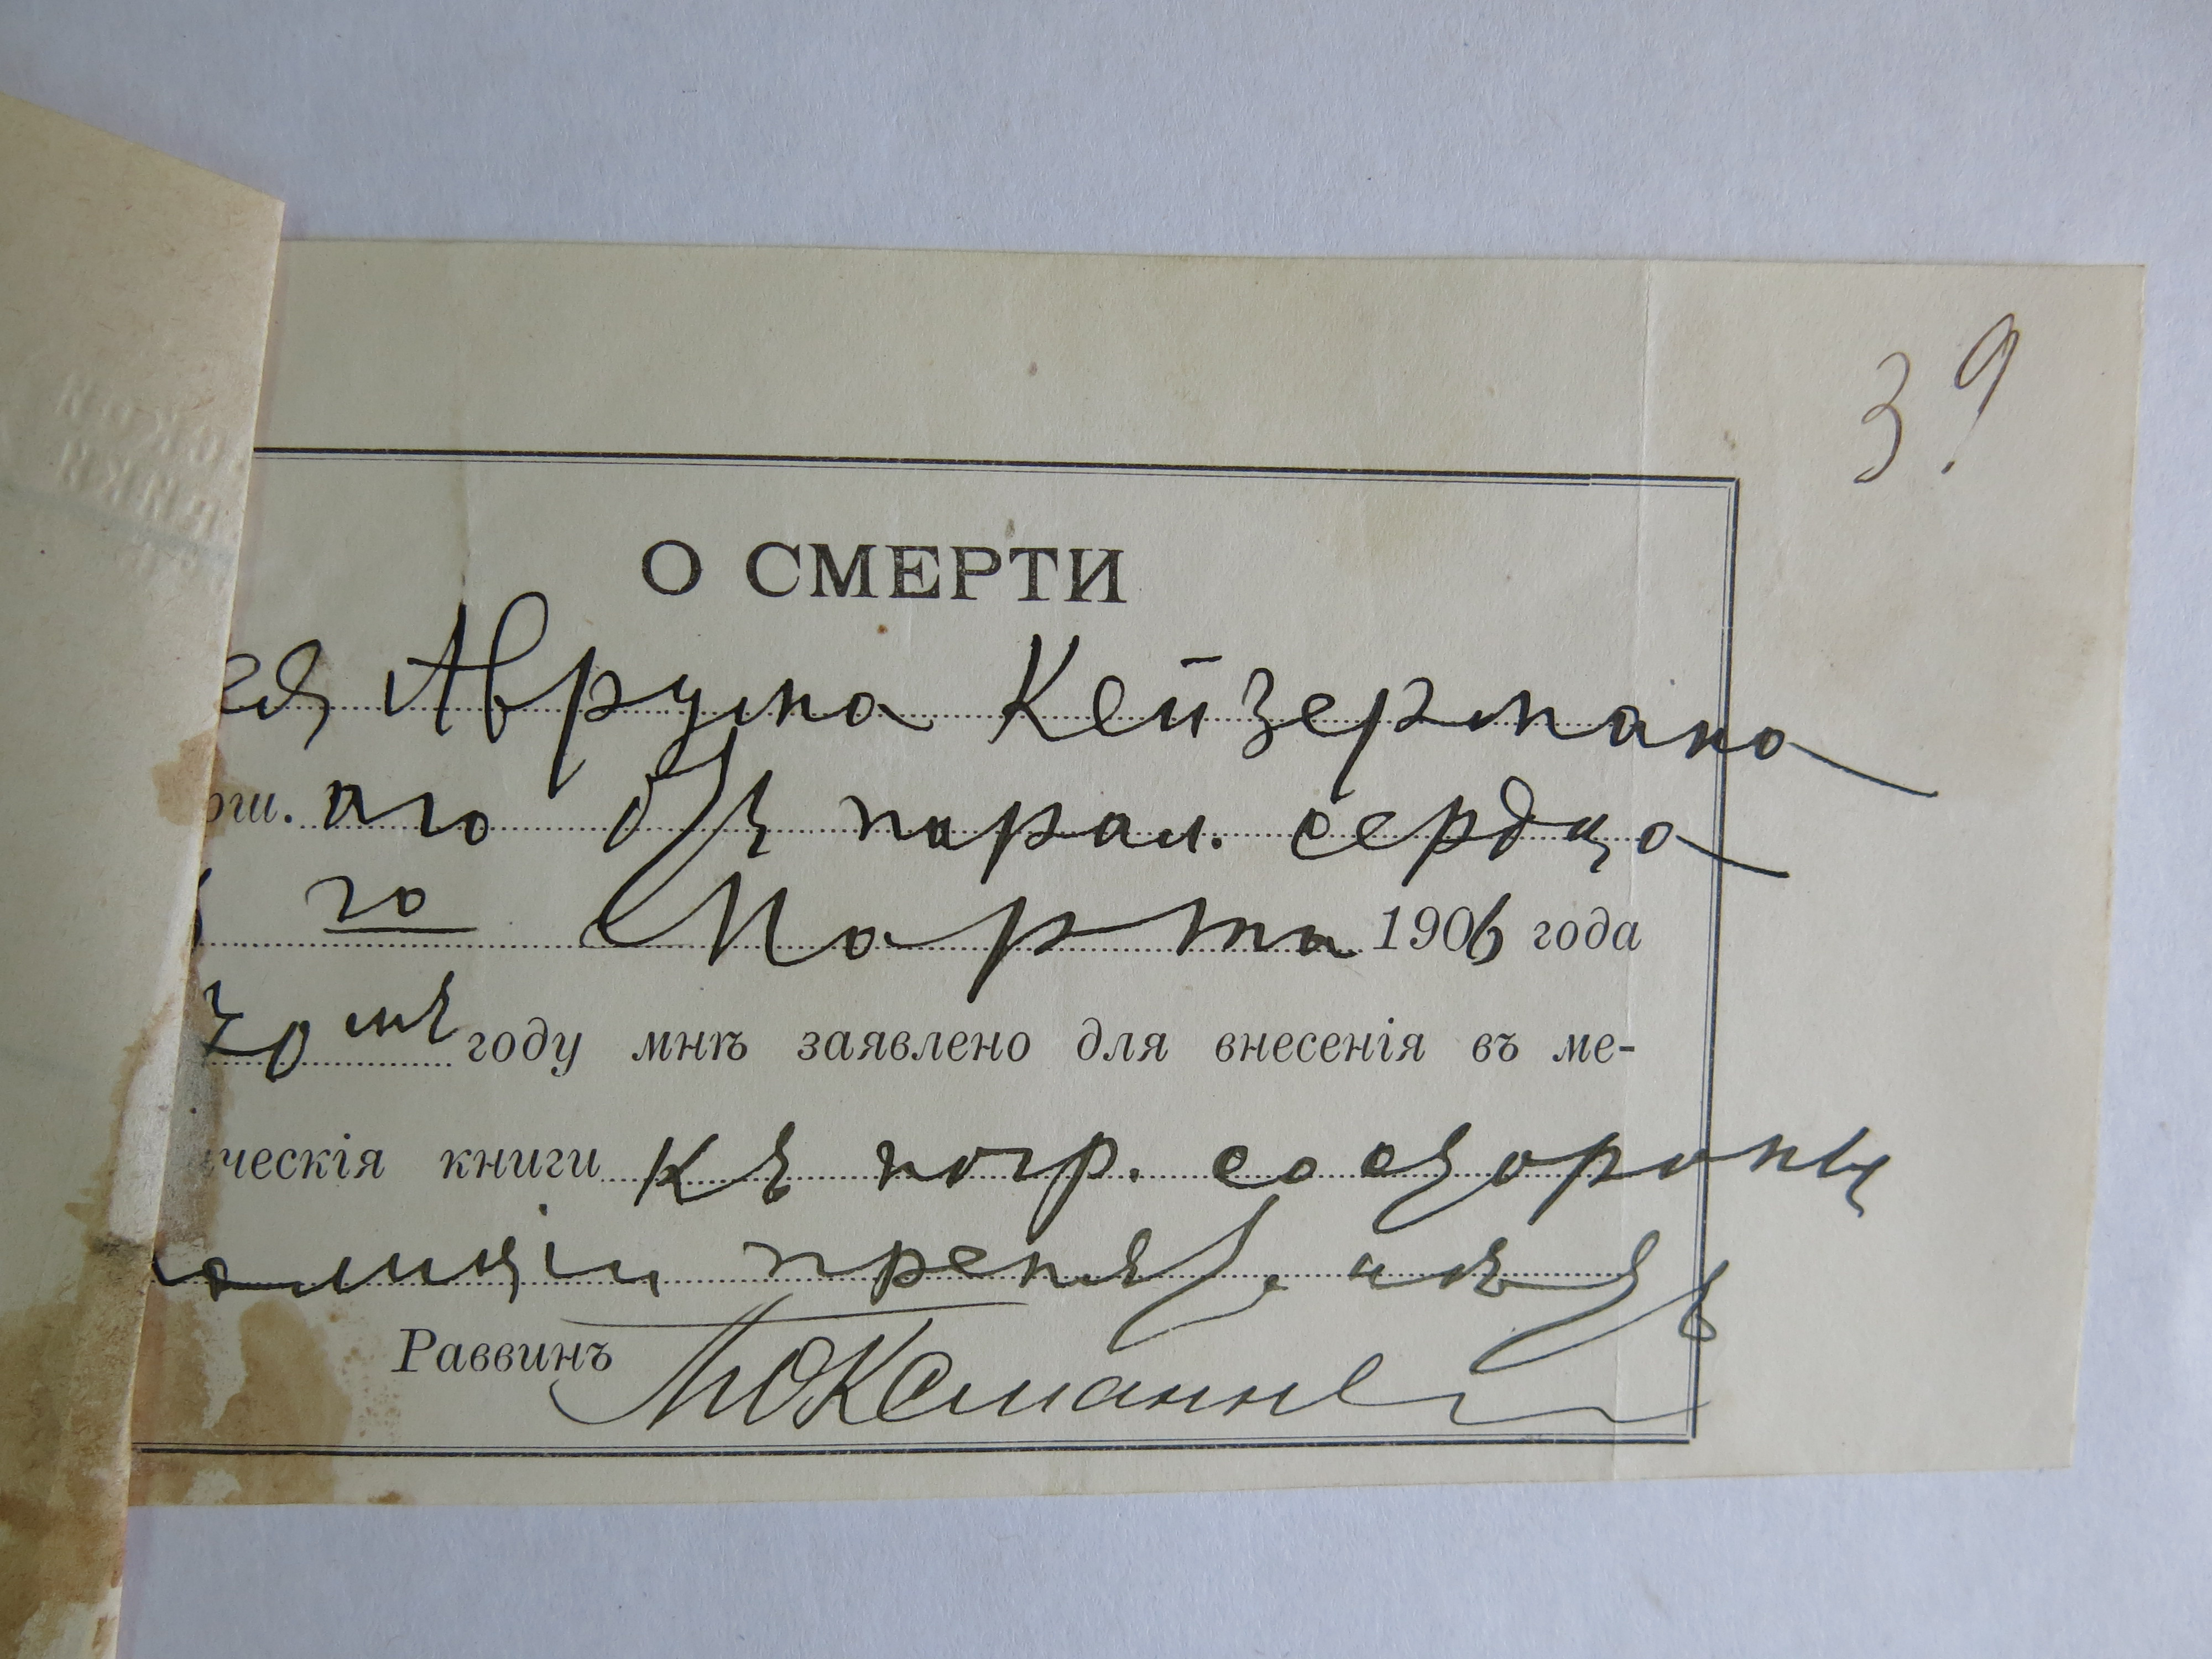 39
О СМЕРТИ
ея Аврума Кейзермана
рш. аго отъ парал. сердца
го Марта 1906 года
70 мъ году мнѣ заявлено для внесенія въ ме-
ческія книги къ погр. со стороны
олиціи препят. нѣтъ
Раввинъ